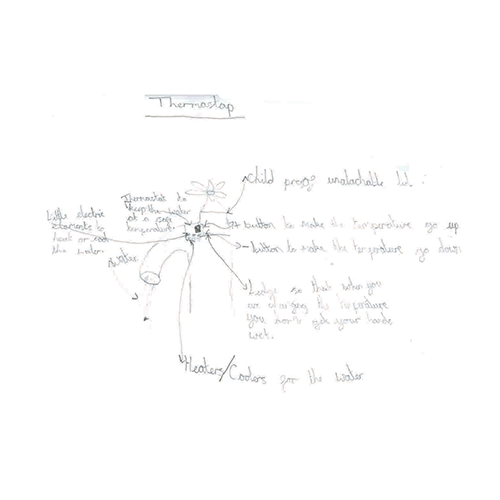 Thermostap
Child proof unatachable lid.
Thermostat to
keep the water
at a safe
temperature.
Little electric
elements to
heat or cool
the water.
+ button to make the temperature go up
- button to make the temperature go down
Water
Ledge so that when you
are changing the temperature
you don't get your hands
wet.
Heaters/Coolers for the water